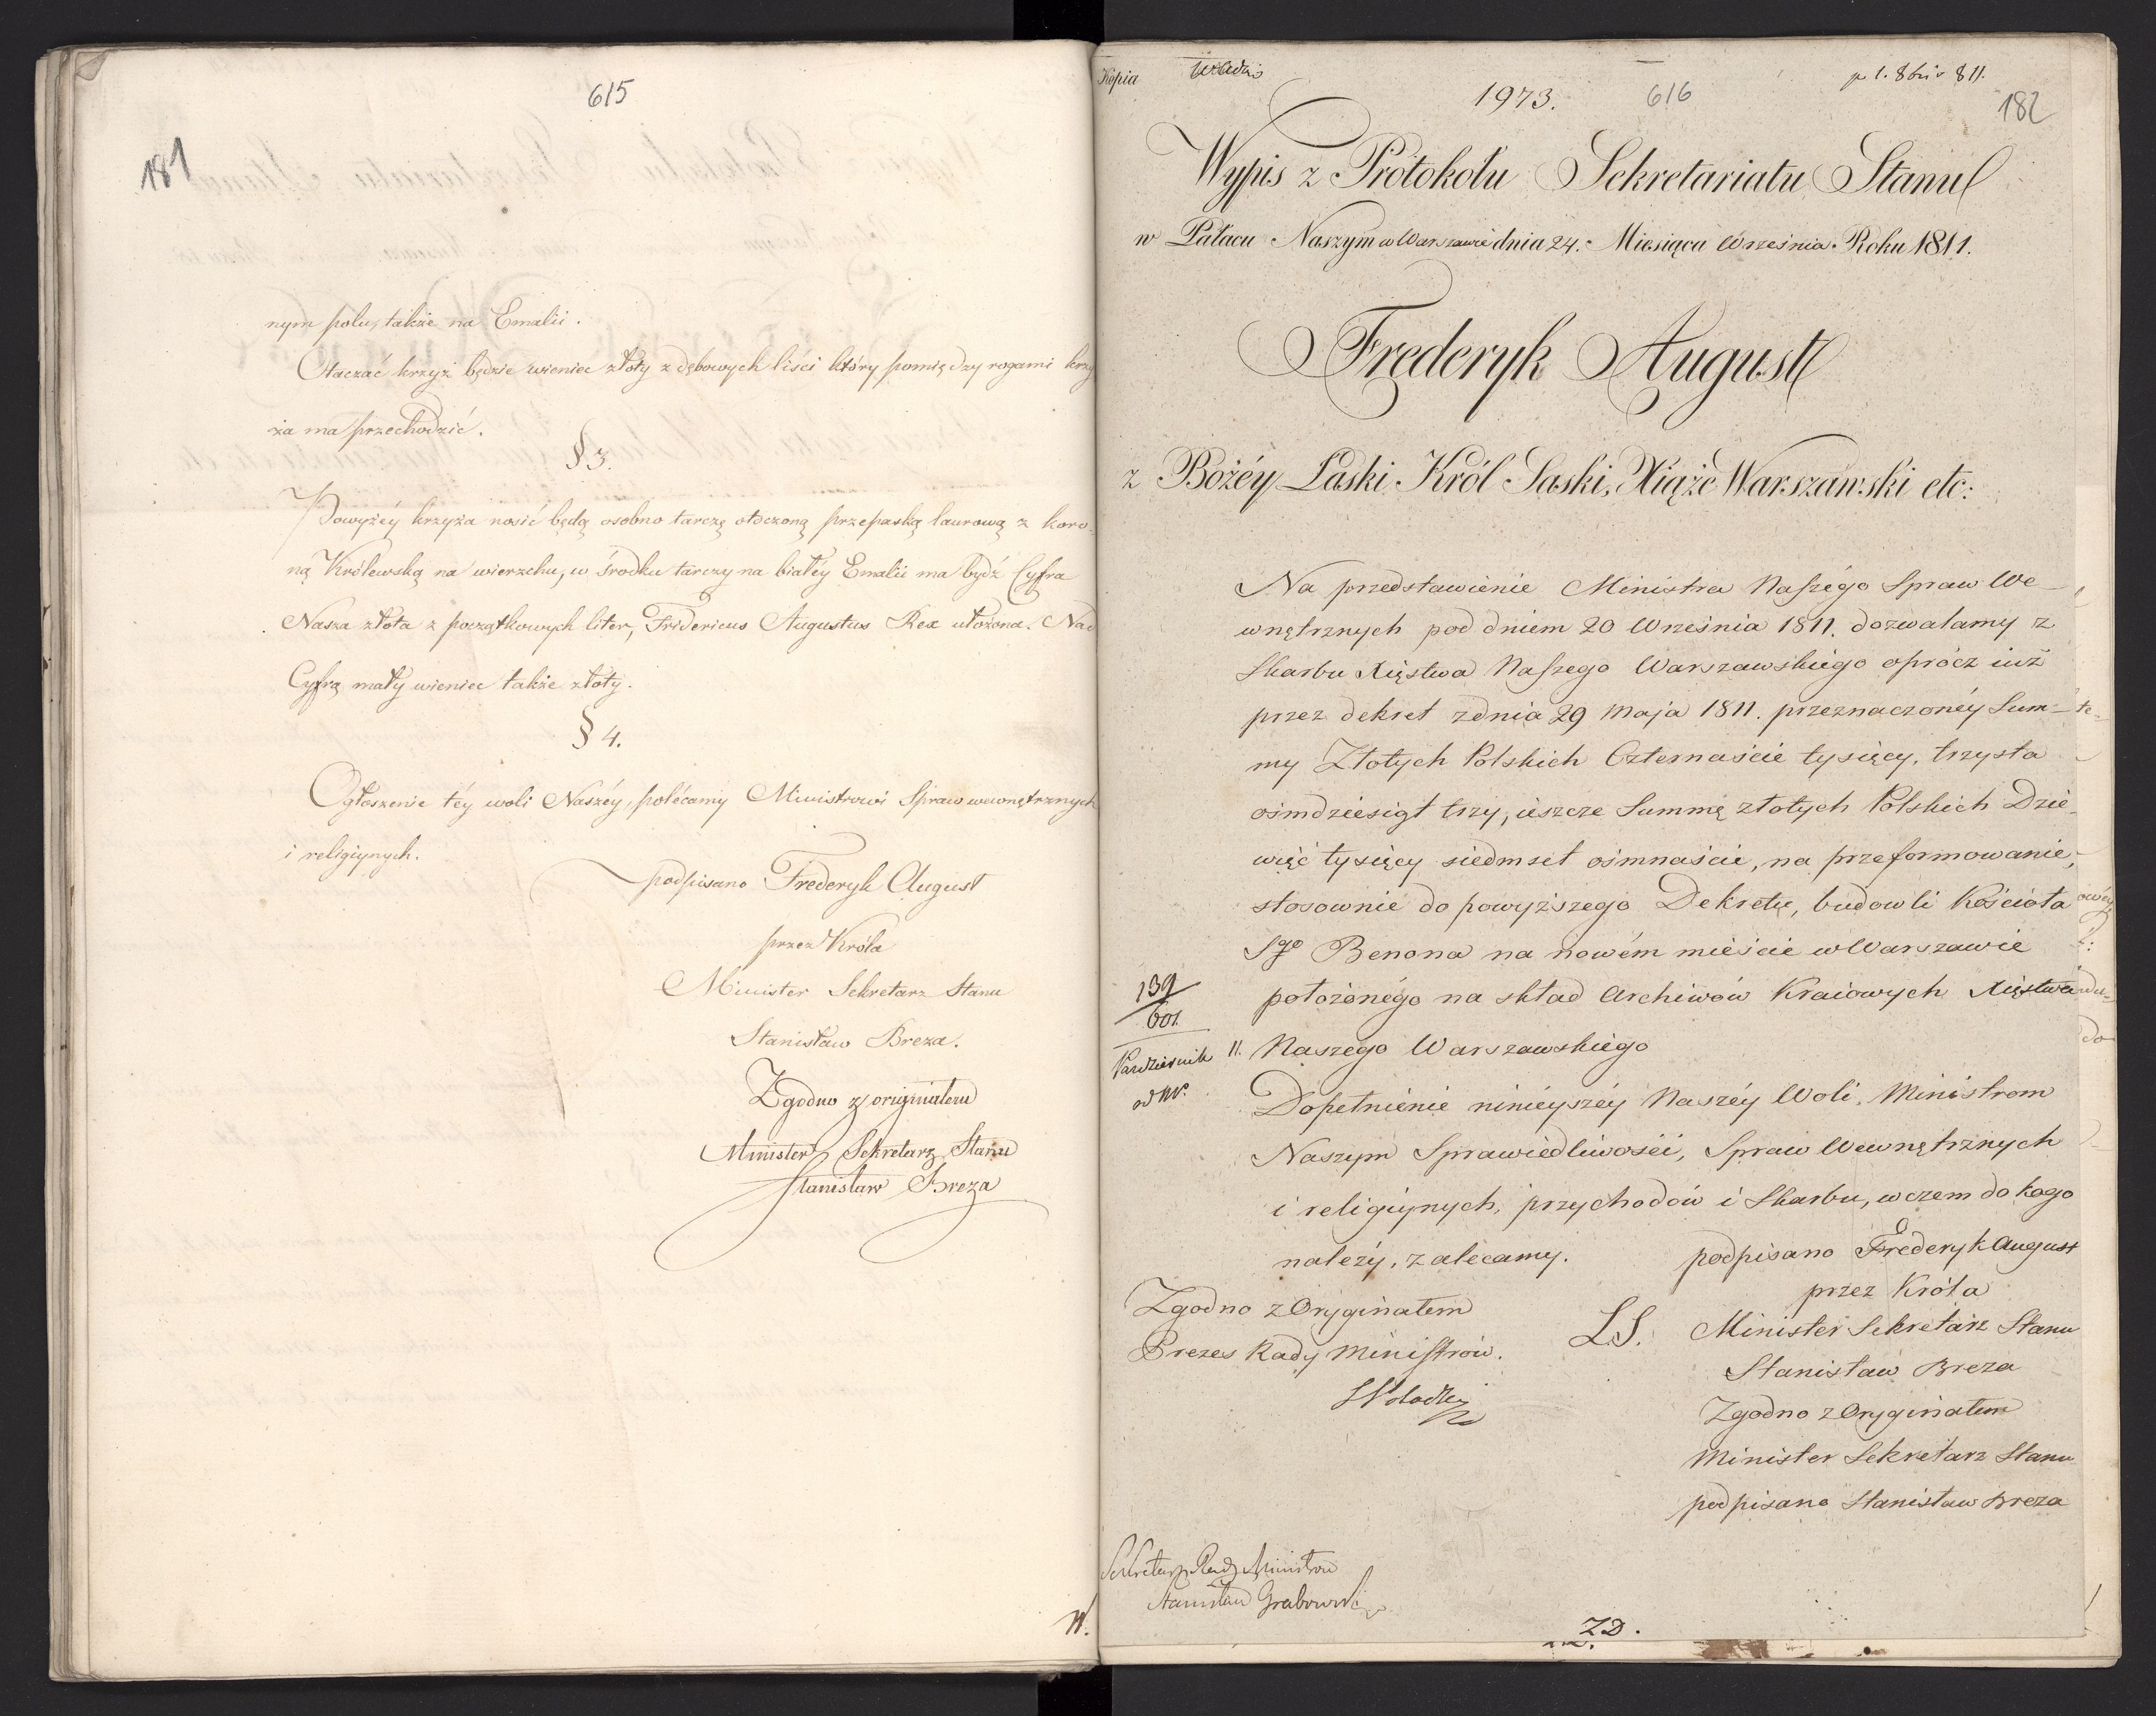 615
181
nym polu, także na Emalii.
Otaczać krzyż będzie wieniec złoty z dębowych liści który pomiędzy rogami krzy
ża ma przechodzić.
§ 3.
Powyżéy krzyża nosić będą osobno tarczę otoczoną przepaską laurową z koro
ną Królewską na wierzchu, w środku tarczy na białéy Emalii ma bydź Cyfra
Nasza złota z początkowych liter, Fridericus Augustus Rex ułożona. Nad
Cyfrą mały wieniec także złoty.
§ 4.
Ogłoszenie téy woli Naszéy, polécamy Ministrowi Spraw wewnętrznych
i religiynych.
podpisano Frederyk August
przez Króla
Minister Sekretarz Stanu
Stanisław Breza.
Zgodno z originałem
Minister Sekretarz Stanu
Stanisław Breza
Kopia
1973.
616
182
Wypis z Protokołu Sekretariatu Stanu
w Pałacu Naszym w Warszawie dnia 24. Miesiąca Września Roku 1811.
Frederyk August
z Bożéy Łaski Król Saski, Xiąże Warszawski etc:
Na przedstawienie Ministra Naszégo Spraw We-
wnętrznych pod dniem 20 Września 1811. dozwalamy z
Skarbu Xięstwa Naszego Warszawskiego oprócz iuż
przez dekret z dnia 29 Maja 1811. przeznaczonéy Sum-
my Złotych Polskich Czternaście tysięcy, trzysta
ośmdziesiąt trzy, ieszcze Summę złotych Polskich Dzie-
więć tysięcy siedmset ośmnaście, na przeformowanie,
stosownie do powyższego Dekretu, budowli Kościoła
Sgo Benona na nowém mieście w Warszawie
położonégo na skład Archiwów Kraiowych Xięstwa
Naszego Warszawskiego
139
601
Październik 11.
Dopełnienie ninieyszéy Naszéy Woli, Ministrom
Naszym Sprawiedliwości, Spraw Wewnętrznych
i religiynych, przychodów i Skarbu, w czem do kogo
należy, zalecamy.
podpisano Frederyk August
przez Króla
L.S. Minister Sekretarz Stanu
Stanisław Breza
Zgodno z Oryginałem
Minister Sekretarz Stanu
podpisano Stanisław Breza
Zgodno z Oryginałem
Prezes Rady Ministrów.
Sekretarz Rady Ministrow
Stanisław Grabowski
ZD.